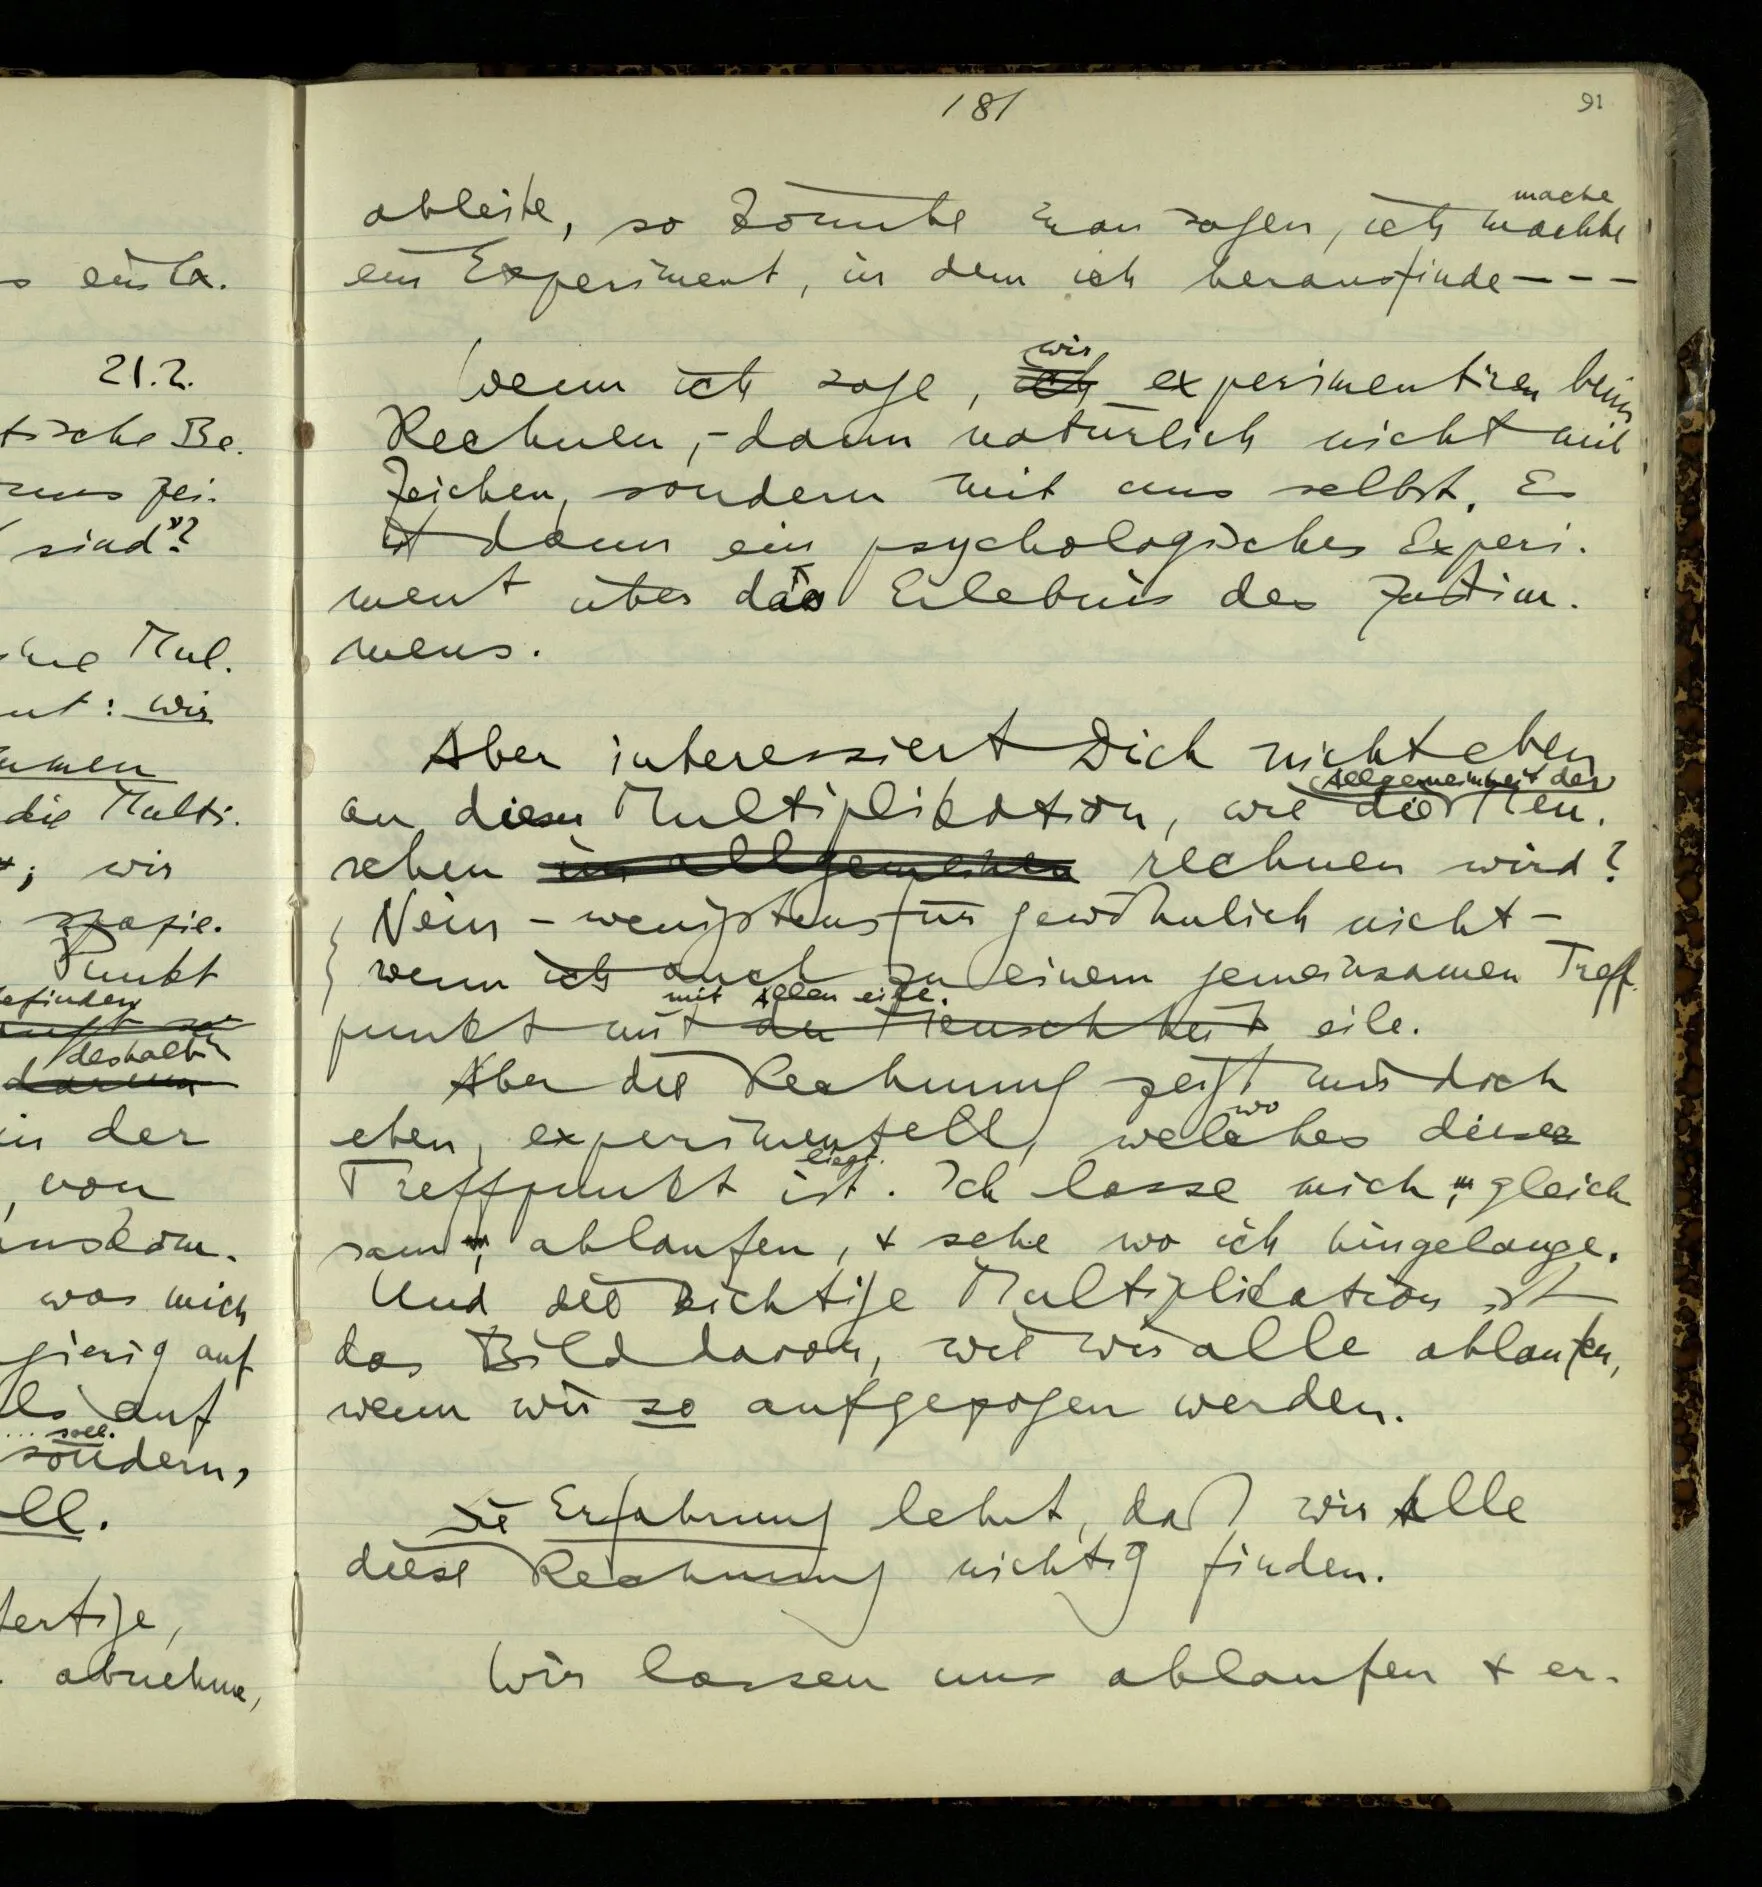 s einla.
21.2.
tische Be.
uns zei.
sind"?
Mul.
: wir
die Multi.
; wir
spazie.
Punkt
befinden
deshalb
darum
in der
, von
was mich
gierig auf
auf
... soll.
sondern,
ll.
fertige,
abnehme,
181
91
mache
ableite, so könnte man sagen, ich machte
ein Experiment, in dem ich herausfinde – – –
wir
Wenn ich sage, ich experimentiren beim
Rechnen, – dann natürlich nicht mit
Zeichen, sondern mit uns selbst. Es
ist dann ein psychologisches Experi-
ment über das Erlebnis des Zustim-
mens.
Aber interessiert Dich nicht eben
Allgemeinheit der
an dieser Multiplikation, wie die Men-
schen im allgemeinen rechnen wird?
Nein – wenigstens für gewöhnlich nicht –
wenn ich auch zu einem gemeinsamen Treff-
mit Allen eile.
punkt mit der Menschheit eile.
Aber die Rechnung zeigt mir doch
wo
eben, experimentell, welches dieser
liegt.
Treffpunkt ist. Ich lasse mich, „gleich
sam“, ablaufen, & sehe wo ich hingelange.
Und die richtige Multiplikation ist
das Bild davon, wie wir alle ablaufen,
wenn wir so aufgezogen werden.
Die Erfahrung lehrt, daß wir Alle
diese Rechnung richtig finden.
Wir lassen uns ablaufen & er-